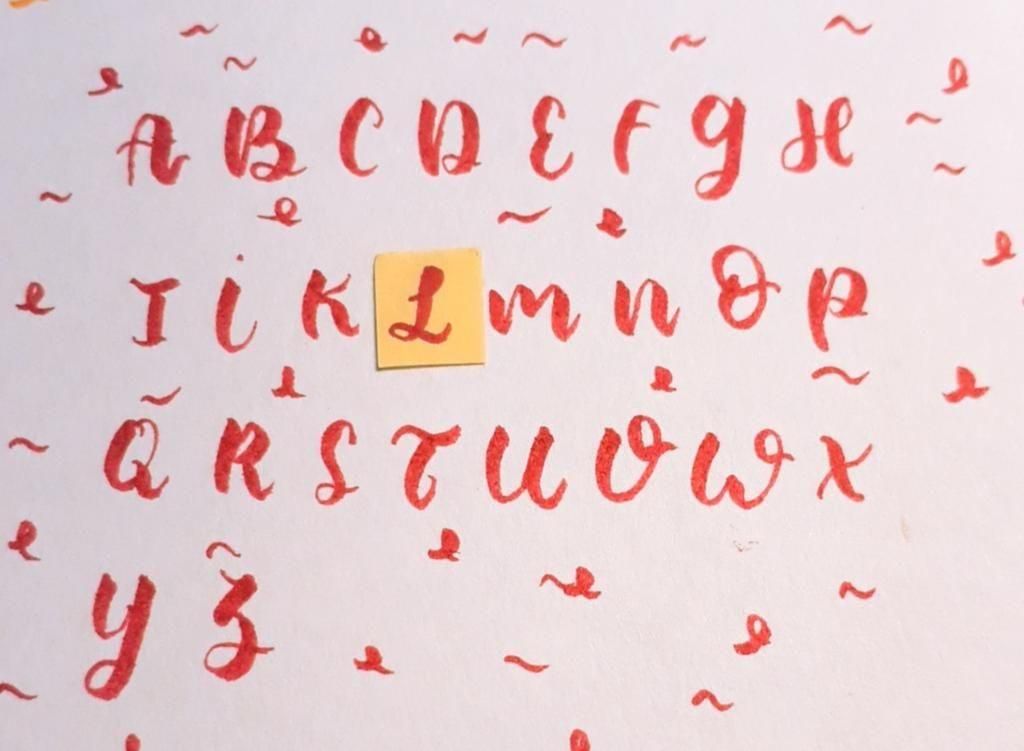 A B C D E F G H
I j K L m n O P
Q R S T U V W X
Y Z